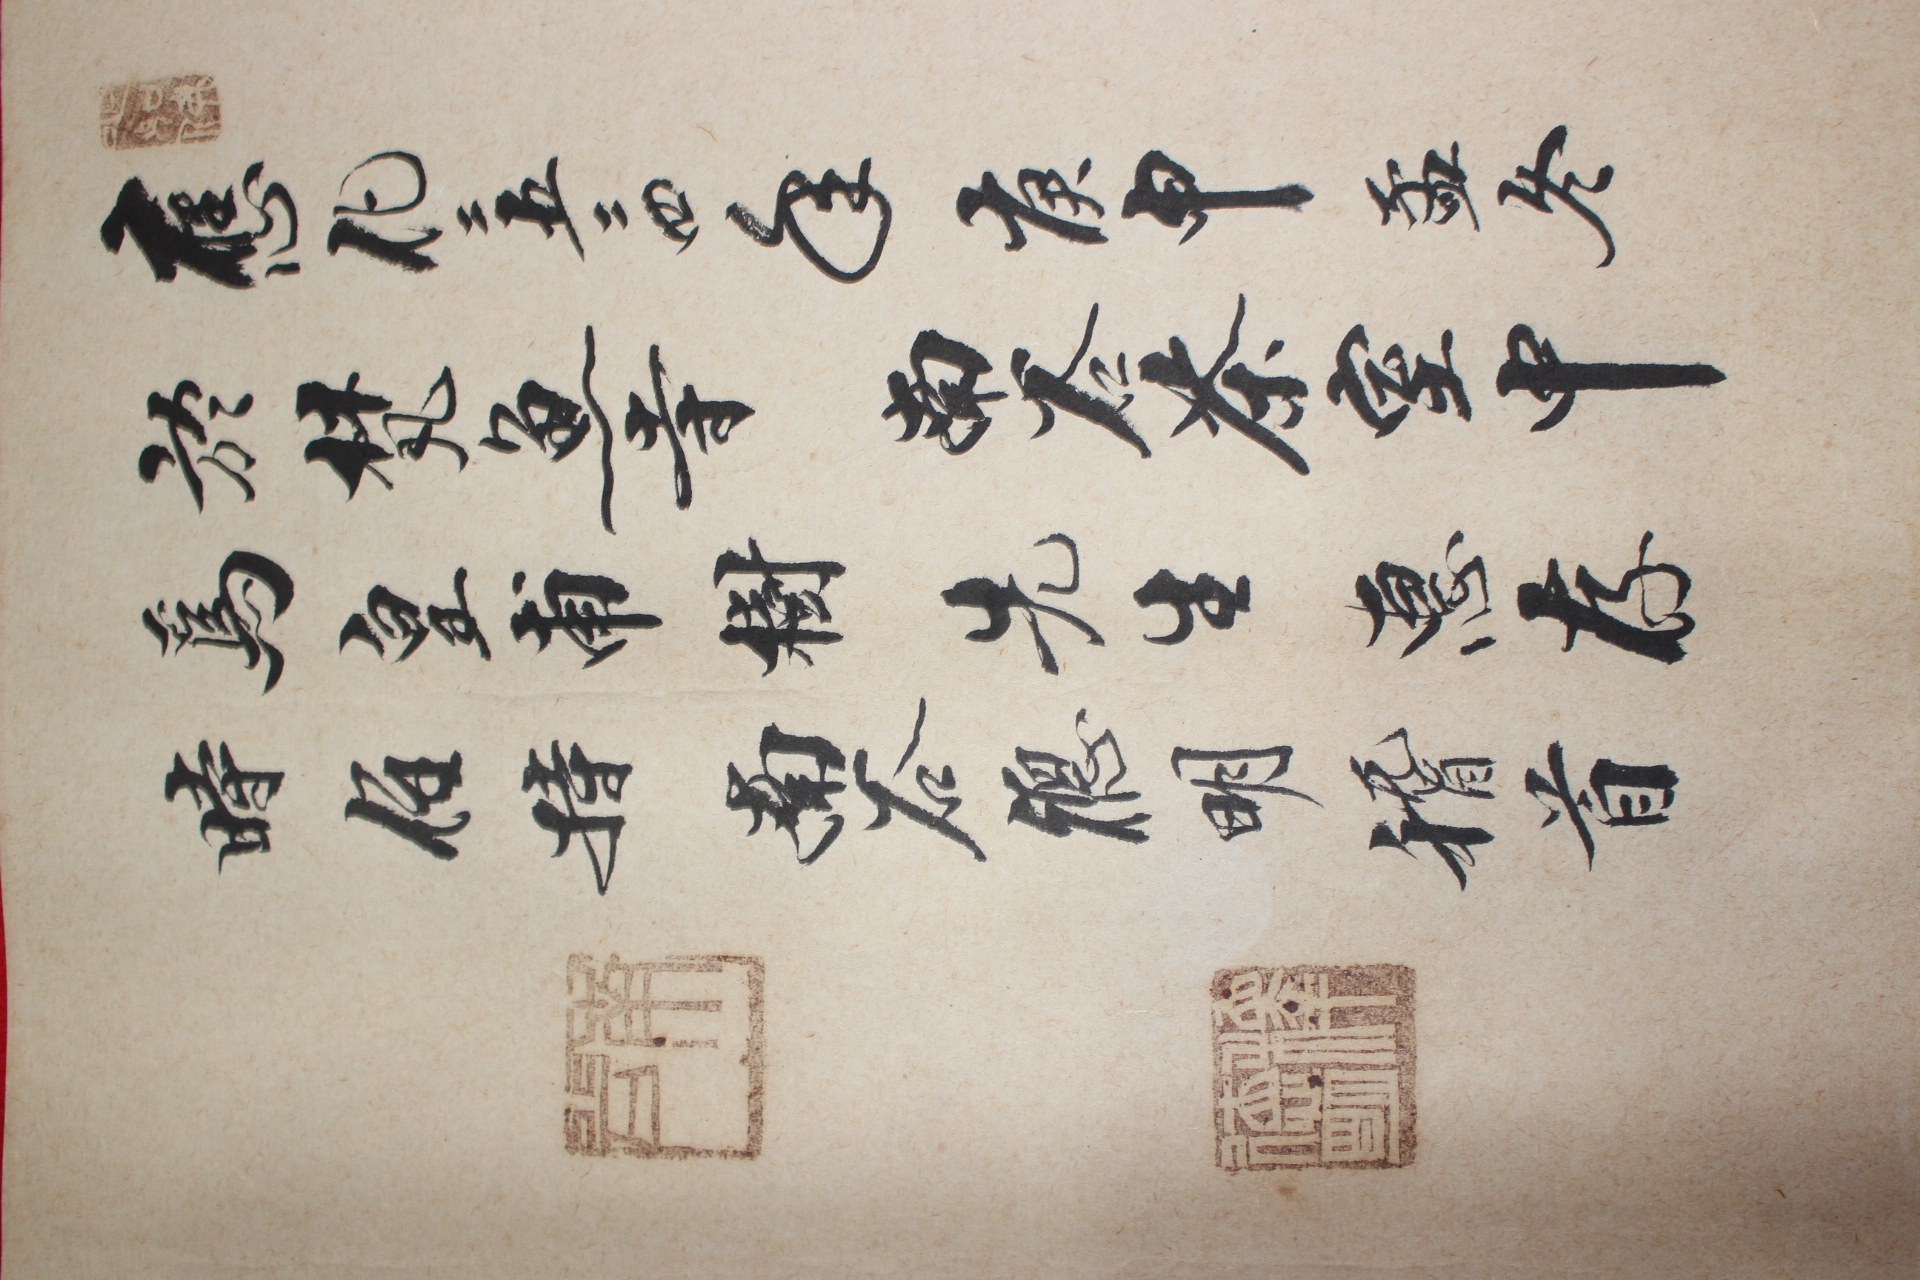 應化二五二四年 庚申 孟冬
於梵魚寺 南谷茶室中
爲皇甫樹先生 惠存
時住持 南谷德明稽首
南谷
釋德明